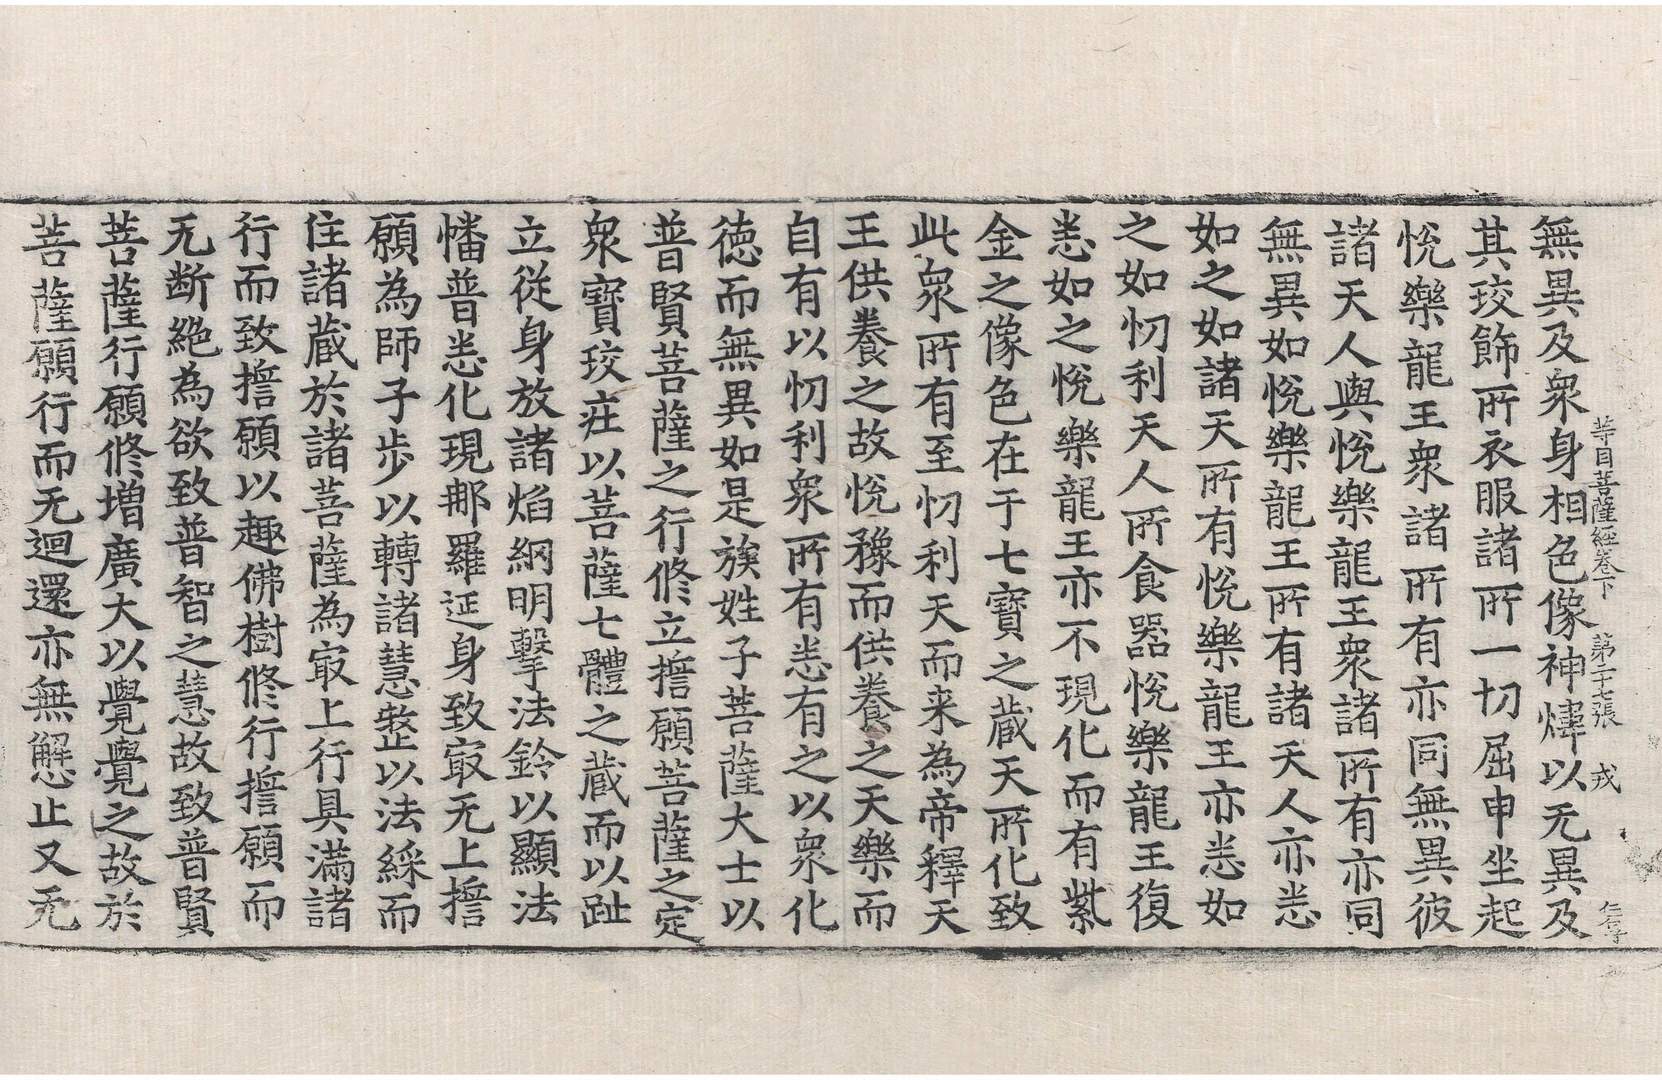 等目菩薩經卷下　第二十七張　戎　仁子
無異及衆身相色像神煒以无異及
其珓飾所衣服諸所一切屈申坐起
悅樂龍王衆諸所有亦同無異彼
諸天人與悅樂龍王衆諸所有亦同
無異如悅樂龍王所有諸天人亦恙
如之如諸天所有悅樂龍王亦恙如
之如忉利天人所食器悅樂龍王復
恙如之悅樂龍王亦不現化而有紫
金之像色在于七寶之藏天所化致
此衆所有至忉利天而来為帝釋天
王供養之故悅豫而供養之天樂而
自有以忉利衆所有恙有之以衆化
徳而無異如是族姓子菩薩大士以
普賢菩薩之行修立擔願菩薩之定
衆寶珓莊以菩薩七體之藏而以趾
立從身放諸焰網明擊法鈴以顯法
幡普恙化現郍羅延身致㝡无上擔
願為師子步以轉諸慧整以法綵而
住諸藏於諸菩薩為㝡上行具滿諸
行而致擔願以趣佛樹修行擔願而
无断絕為欲致普智之慧故致普賢
菩薩行願修增廣大以覺覺之故於
菩薩願行而无迴還亦無懈止又无